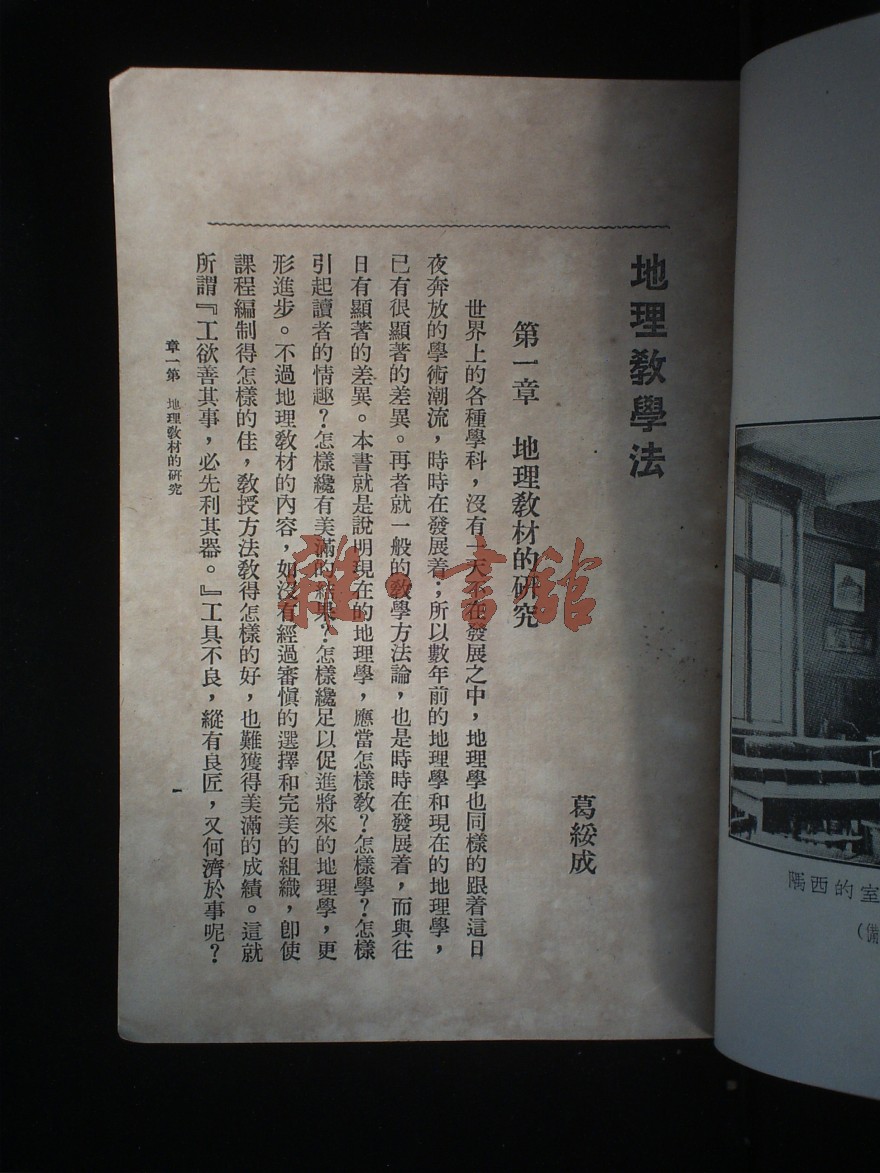 地理教學法
葛綏成
第一章　地理教材的研究
世界上的各種學科，沒有一天不在發展之中，地理學也同樣的跟着這日
夜奔放的學術潮流，時時在發展着；所以數年前的地理學和現在的地理學，
已有很顯著的差異。再者就一般的教學方法論，也是時時在發展着，而與往
日有顯著的差異。本書就是說明現在的地理學，應當怎樣教？怎樣學？怎樣
引起讀者的情趣？怎樣纔有美滿的結果？怎樣纔足以促進將來的地理學，更
形進步。不過地理教材的內容，如沒有經過審慎的選擇和完美的組織，卽使
課程編制得怎樣的佳，教授方法教得怎樣的好，也難獲得美滿的成績。這就
所謂『工欲善其事，必先利其器。』工具不良，縱有良匠，又何濟於事呢？
章一第　地理教材的研究
一
隅西的室
(備
雜·書館